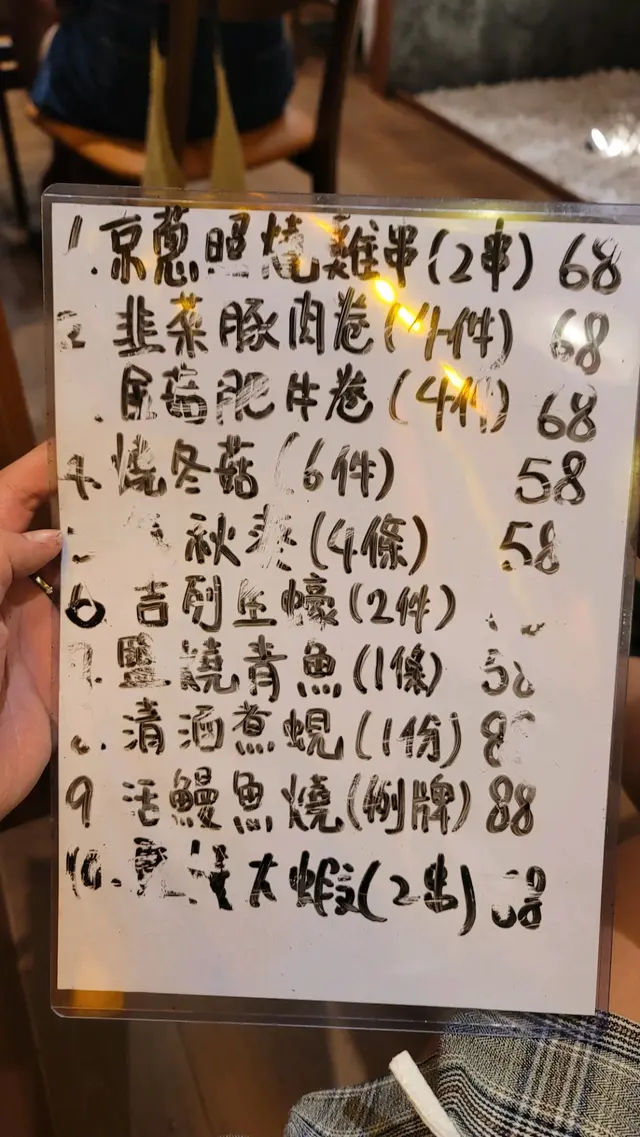 1. 京蔥照燒雞串(2串) 68
2 韭菜豚肉卷(4件) 68
菇肥牛卷(4件) 68
4. 燒冬菇(6件) 58
秋葵(4條) 58
6 吉列生蠔(2件)
7. 鹽燒青魚(1條)
清酒煮蜆(1份)
9 活鰻魚燒(例牌) 88
10. 大蝦(2串) 68